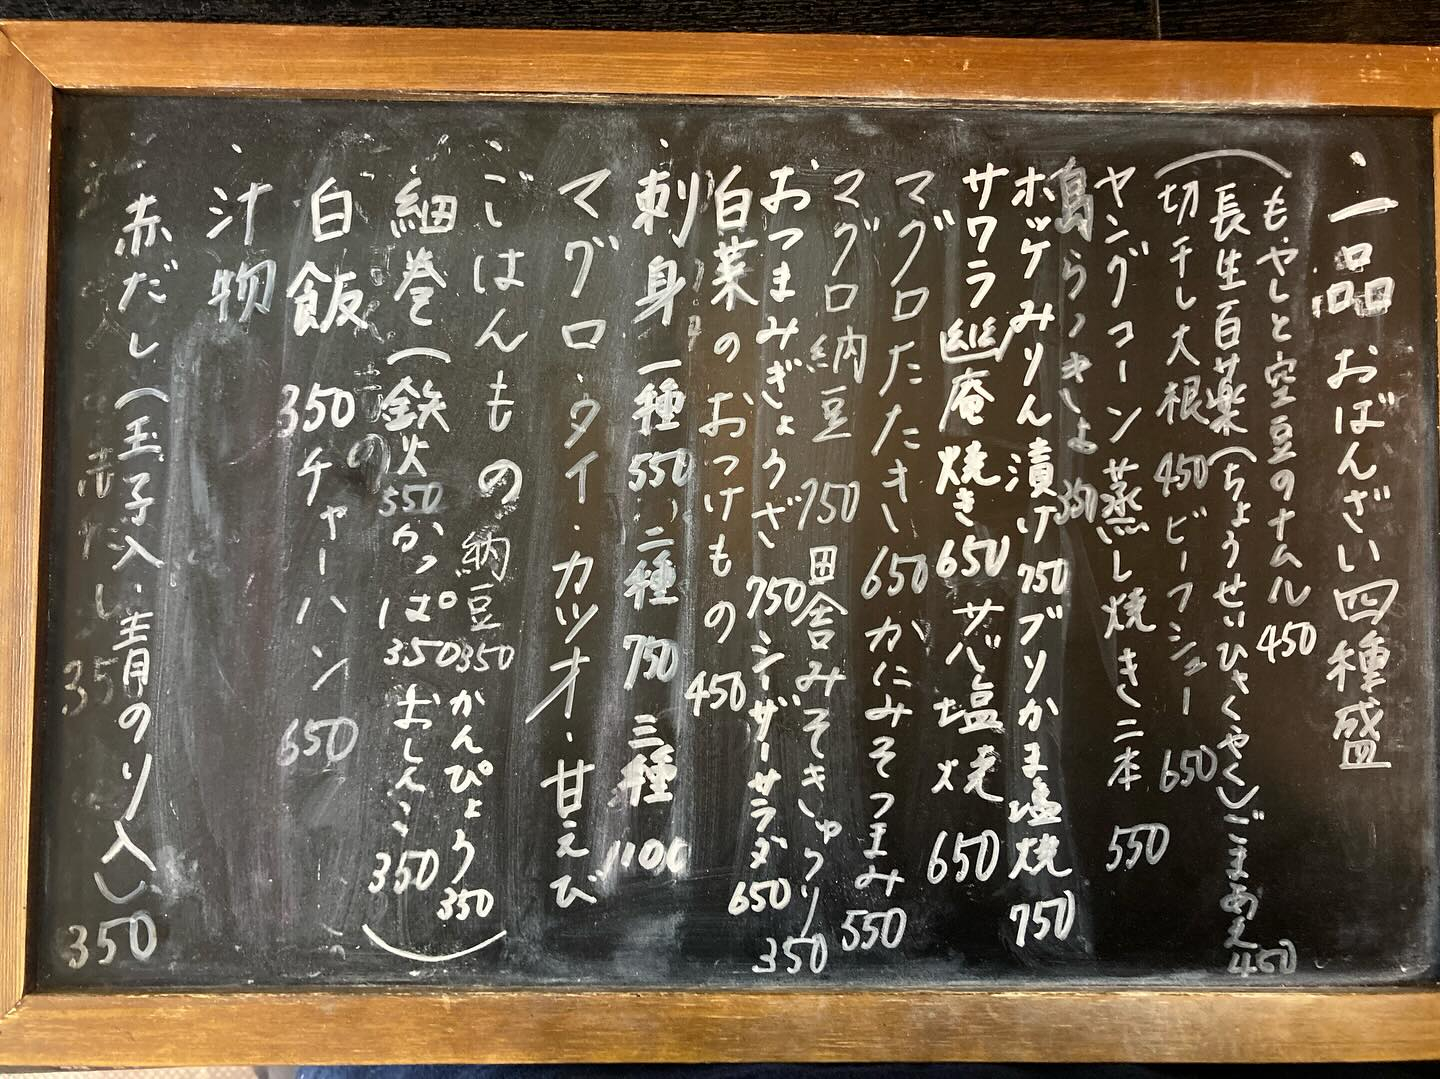 ・一品 おばんざい四種盛
（もやしと空豆のナムル 450
長生百薬（ちょうせいひゃくやく）ごまあえ 450
切干し大根 450 ビーフシチュー 650
ヤングコーン蒸し焼き二本 550
島らっきょ 350
ホッケみりん漬け 750 ブリかま塩焼 750
サワラ幽庵焼き 650 サバ塩焼 650
マグロたたき 650 かにみそつまみ 550
マグロ納豆 750 田舎みそきゅうり 350
おつまみぎょうざ 750 シーザーサラダ 650
白菜のおつけもの 450
・刺身 一種 550 二種 750 三種 1100
マグロ・タイ・カツオ・甘えび
・ごはんもの
納豆 350 かんぴょう 350
細巻（鉄火 550 かっぱ 350 おしんこ 350）
白飯 350 チャーハン 650
・汁物
赤だし（玉子入・青のり入） 350